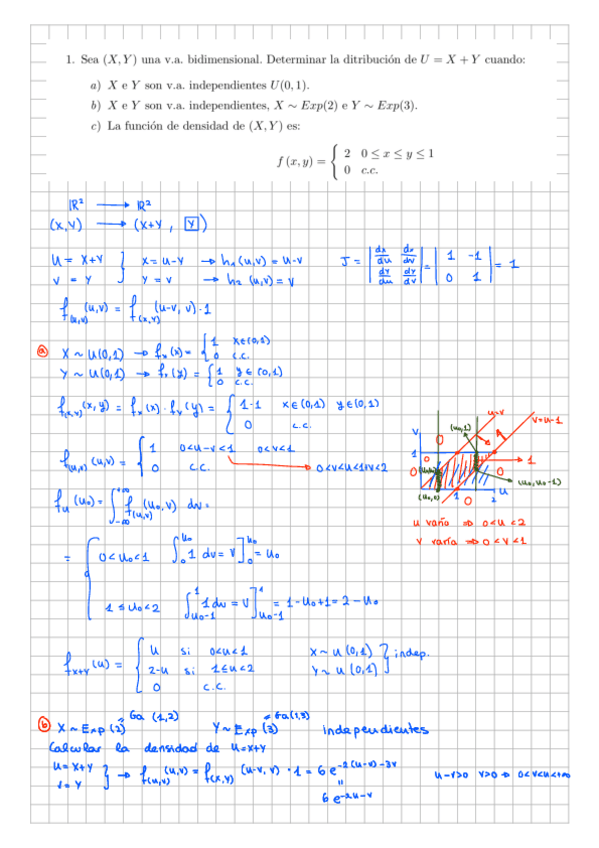 1. Sea (X, Y) una v.a. bidimensional. Determinar la ditribución de U = X + Y cuando:
a) X e Y son v.a. independientes U(0, 1).
b) X e Y son v.a. independientes, X ∼ Exp(2) e Y ∼ Exp(3).
c) La función de densidad de (X, Y) es:
f (x, y) = { 2 0 ≤ x ≤ y ≤ 1
0 c.c.
ℝ² → ℝ²
(x,y) → (x+y , y)
u = x+y } x = u-v → h₁(u,v) = u-v
v = y } y = v → h₂(u,v) = v
J = | dx/du dx/dv ; dy/du dy/dv | = | 1 -1 ; 0 1 | = 1
f(u,v) (u,v) = f(x,y) (u-v, v) · 1
a) X ~ U(0,1) → fx(x) = { 1 x∈(0,1)
0 c.c.
Y ~ U(0,1) → fy(y) = { 1 y∈(0,1)
0 c.c.
f(x,y) (x,y) = fx(x) · fy(y) = { 1·1 x∈(0,1) y∈(0,1)
0 c.c.
f(u,v) (u,v) = { 1 0<u-v<1 0<v<1
0 c.c.
→ 0<v<u<1+v<2
u=v
v=u-1
(u₀,1)
(u₀,0)
(u₀,u₀-1)
v
1
0
u
1
2
u varía ⇒ 0<u<2
v varía ⇒ 0<v<1
fu(u₀) = ∫ -∞ +∞ f(u,v) (u₀,v) dv =
= { 0<u₀<1 ∫ 0 u₀ 1 dv = v ] 0 u₀ = u₀
1≤u₀<2 ∫ u₀-1 1 1 dv = v ] u₀-1 1 = 1-u₀+1 = 2-u₀
fx+y (u) = { u si 0<u<1
2-u si 1≤u<2
0 c.c.
X ~ U(0,1) } indep.
Y ~ U(0,1)
b) X ~ Exp(2) = Ga(1,2) Y ~ Exp(3) = Ga(1,3) independientes
Calcular la densidad de u=x+y
u = x+y } → f(u,v) (u,v) = f(x,y) (u-v, v) · 1 = 6 e^-2(u-v)-3v
v = y
=
6 e^-2u-v
u-v>0 v>0 ⇒ 0<v<u<+∞